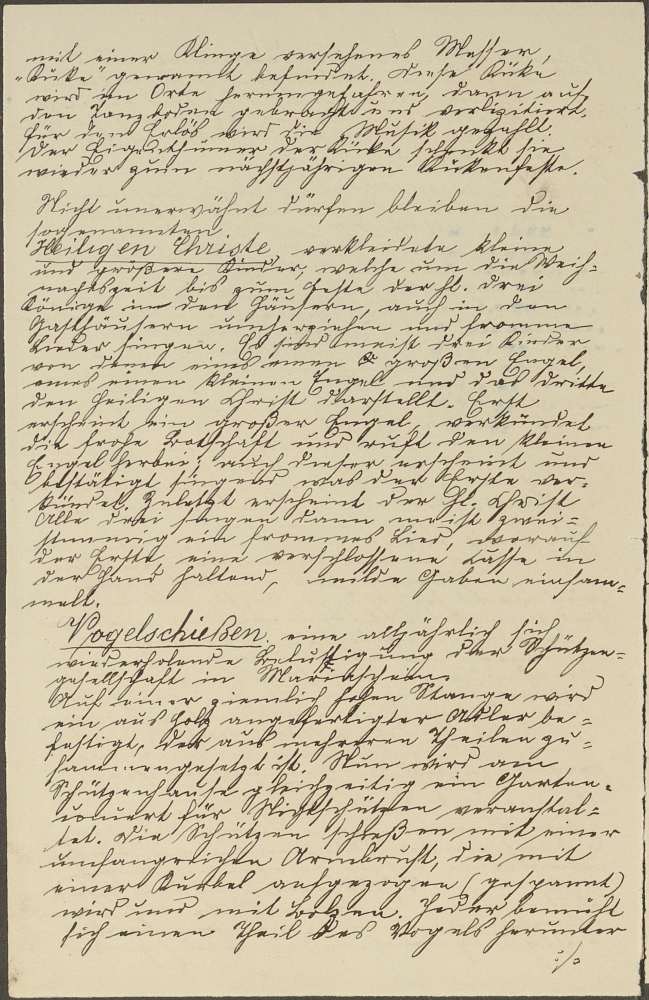 mit einer Klinge versehenes Messer,
"Küke" genannt befindet. Diese Küke
wird im Orte herumgefahren, dann auf
den Tanzboden gebracht und verlizitiert.
Für den Erlös wird die Musik gezahlt.
Der Eigenthümer der Küke schenkt sie
wieder zum nächstjährigen Kükenfeste.
Nicht unerwähnt dürfen bleiben die
sogenannten
Heiligen Christe verkleidete kleine
und größere Kinder, welche um die Weih=
nachtszeit bis zum Feste der hl. drei
Könige in den Häusern, auch in den
Gasthäusern umherziehen und fromme
Lieder singen. Es sind meist drei Kinder
von denen eines einen großen Engel,
eines einen kleinen Engel und das dritte
den heiligen Christ darstellt. Erst
erscheint ein großer Engel, verkündet
die frohe Botschaft und ruft den kleinen
Engel herbei; auch dieser erscheint und
bestätigt singend was der Erste ver=
kündet. Zuletzt erscheint der hl. Christ
Alle drei singen dann, meist zwei=
stimmig ein frommes Lied, worauf
der Erste, eine verschlossene Casse in
der Hand haltend, milde Gaben einsam=
melt.
Vogelschießen, eine alljährlich sich
wiederholende Belustigung der Schützen=
gesellschaft in Mariaschein.
Auf einer ziemlich hohen Stange wird
ein aus Holz angefertigter Adler be=
festigt, der aus mehreren Theilen zu=
sammengesetzt ist. Nun wird am
Schützenhause gleichzeitig ein Garten=
concert für Nichtschützen veranstal=
tet. Die Schützen schießen mit einer
umfangreichen Armbrust, die mit
einer Kurbel aufgezogen (gespannt)
wird und mit Bolzen. Jeder bemüht
sich einen Theil des Vogels herunter
./.